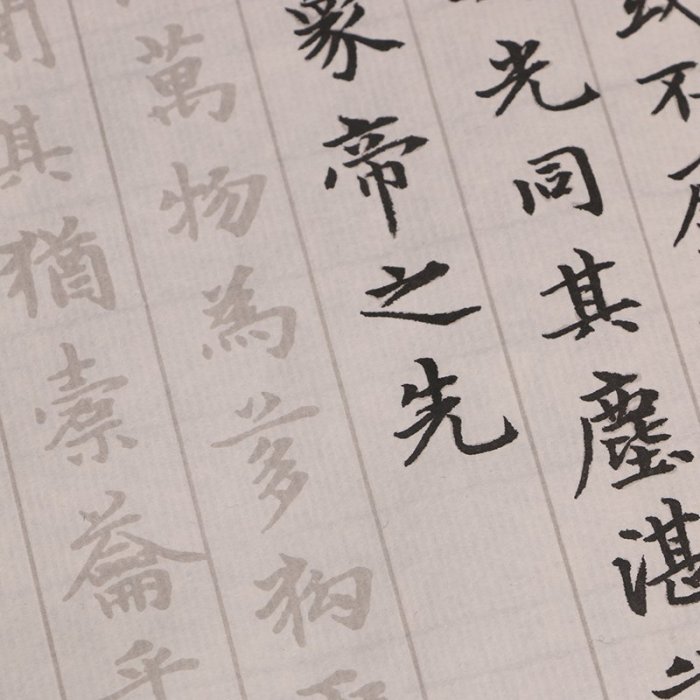 不
光同其塵湛
象帝之先
萬物為芻狗
其猶橐龠乎